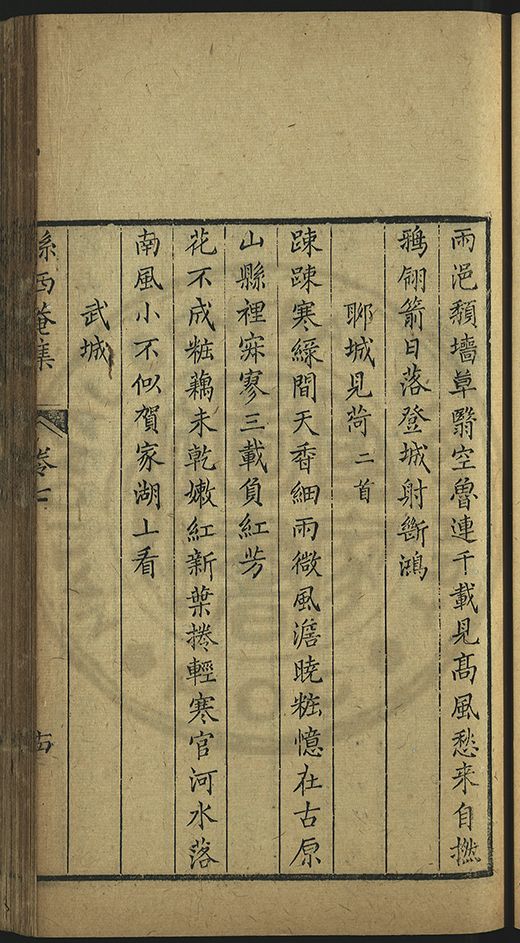 雨浥頽墻草翳空魯連千載見髙風愁来自撚
鵶翎箭日落登城射斷鴻
聊城見荷二首
踈踈寒緑間天香細雨微風澹曉粧憶在古原
山縣裡寂寥三載負紅芳
花不成粧藕未乾嫩紅新葉捲輕寒官河水落
南風小不似賀家湖上看
武城
西菴集
卷七